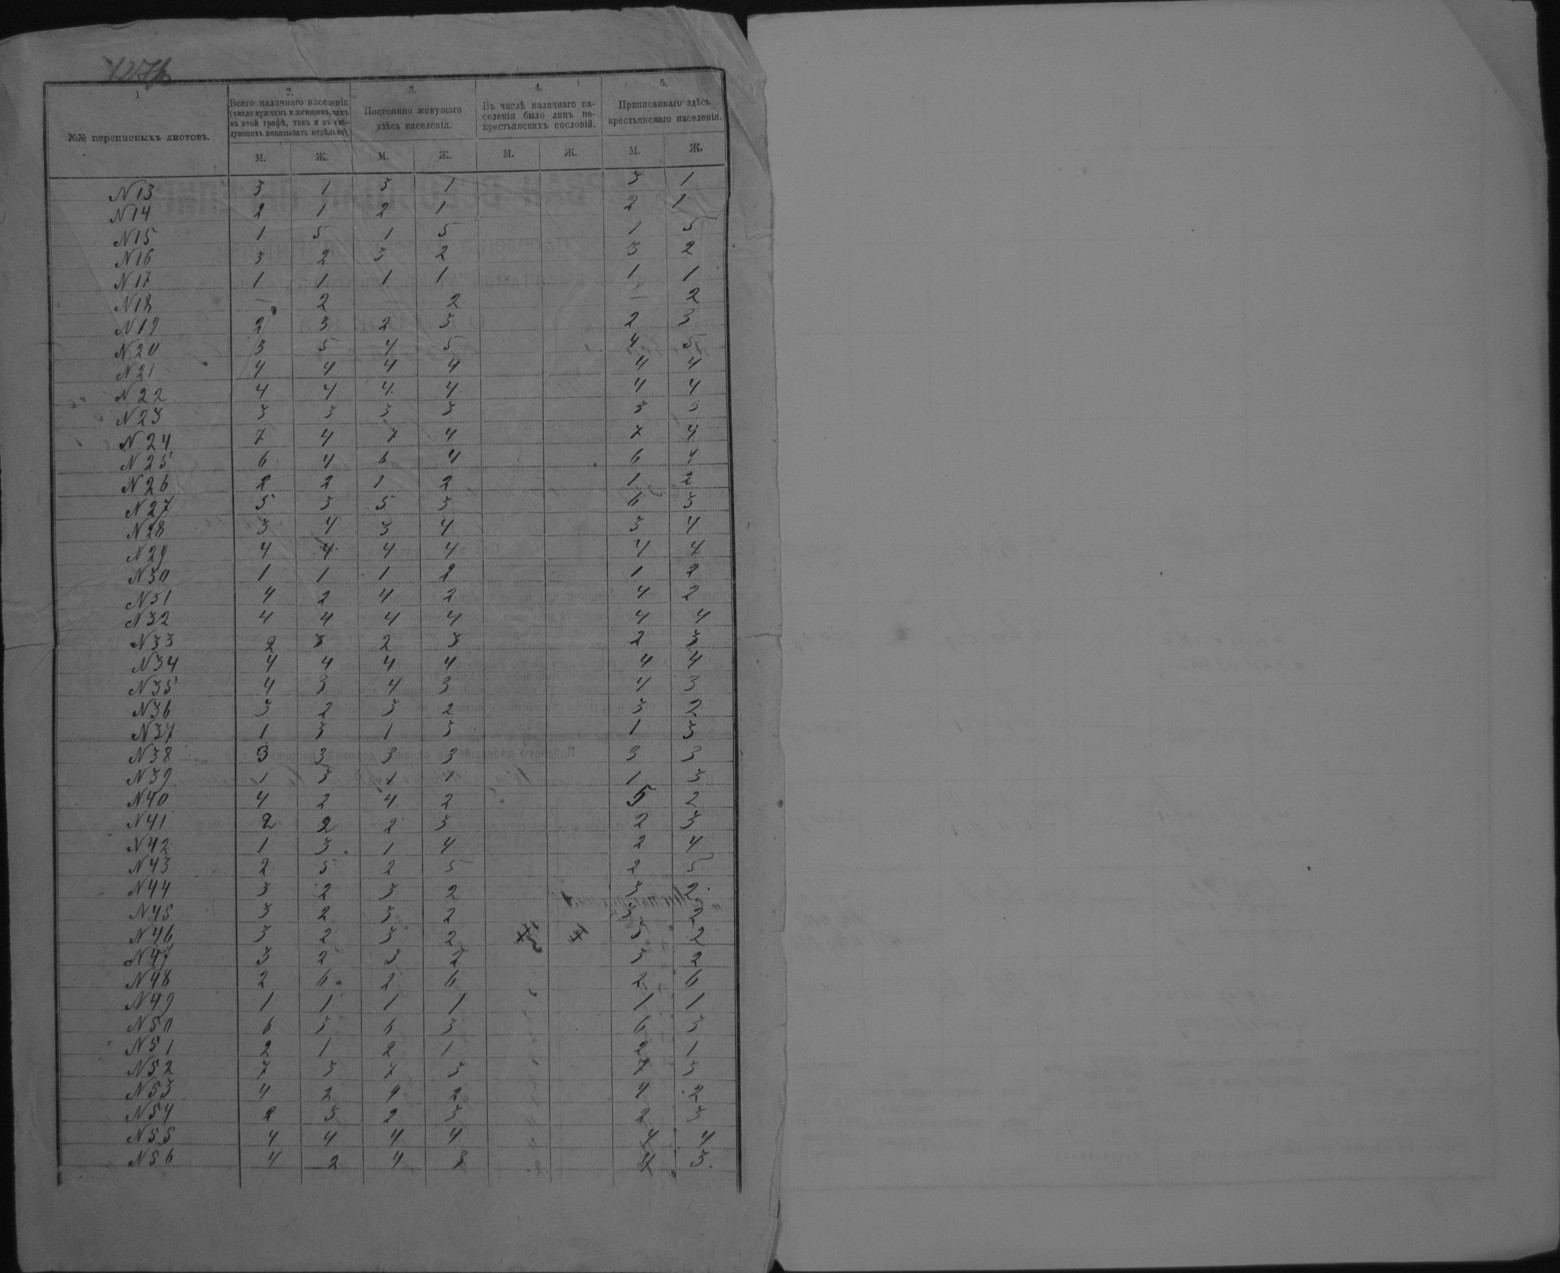 1 2. 3. 4. 5.
№№ переписныхъ листовъ. Всего наличнаго населенія (число мужчинъ и женщинъ, какъ въ этой графѣ, такъ и въ слѣдующихъ показывать отдѣльно). Постоянно живущаго здѣсь населенія. Въ числѣ наличнаго населенія было лицъ не-крестьянскихъ сословій. Приписаннаго здѣсь крестьянскаго населенія.
М. Ж. М. Ж. М. Ж. М. Ж.
N13 3 1 3 1 3 1
N14 2 1 2 1 2 1
N15 1 5 1 5 1 5
N16 3 2 3 2 3 2
N17 1 1 1 1 1 1
N18 — 2 2 — 2
N19 2 3 2 3 2 3
N20 3 5 4 5 4 5
N21 4 4 4 4 4 4
N22 4 4 4 4 4 4
N23 3 3 3 3 3 3
N24 7 4 7 4 7 4
N25 6 4 6 4 6 4
N26 2 2 1 2 1 2
N27 5 3 5 3 6 3
N28 3 4 3 4 3 4
N29 4 4 4 4 4 4
N30 1 1 1 2 1 2
N31 4 2 4 2 4 2
N32 4 4 4 4 4 4
N33 2 3 2 3 2 3
N34 4 4 4 4 4 4
N35 4 3 4 3 4 3
N36 3 2 3 2 3 2
N37 1 3 1 3 1 3
N38 3 3 3 3 3 3
N39 1 3 1 1 1 3
N40 4 2 4 2 5 2
N41 2 2 2 3 2 3
N42 1 3 1 4 2 4
N43 2 5 2 5 2 5
N44 3 2 3 2 3 2
N45 3 2 3 2 3 2
N46 3 2 3 2 3 2
N47 3 2 3 2 3 2
N48 2 6 2 6 2 6
N49 1 1 1 1 1 1
N50 6 3 6 3 6 3
N51 2 1 2 1 2 1
N52 7 3 7 3 7 3
N53 4 2 4 2 4 2
N54 2 3 2 3 2 3
N55 4 4 4 4 4 4
N56 4 2 4 4 3